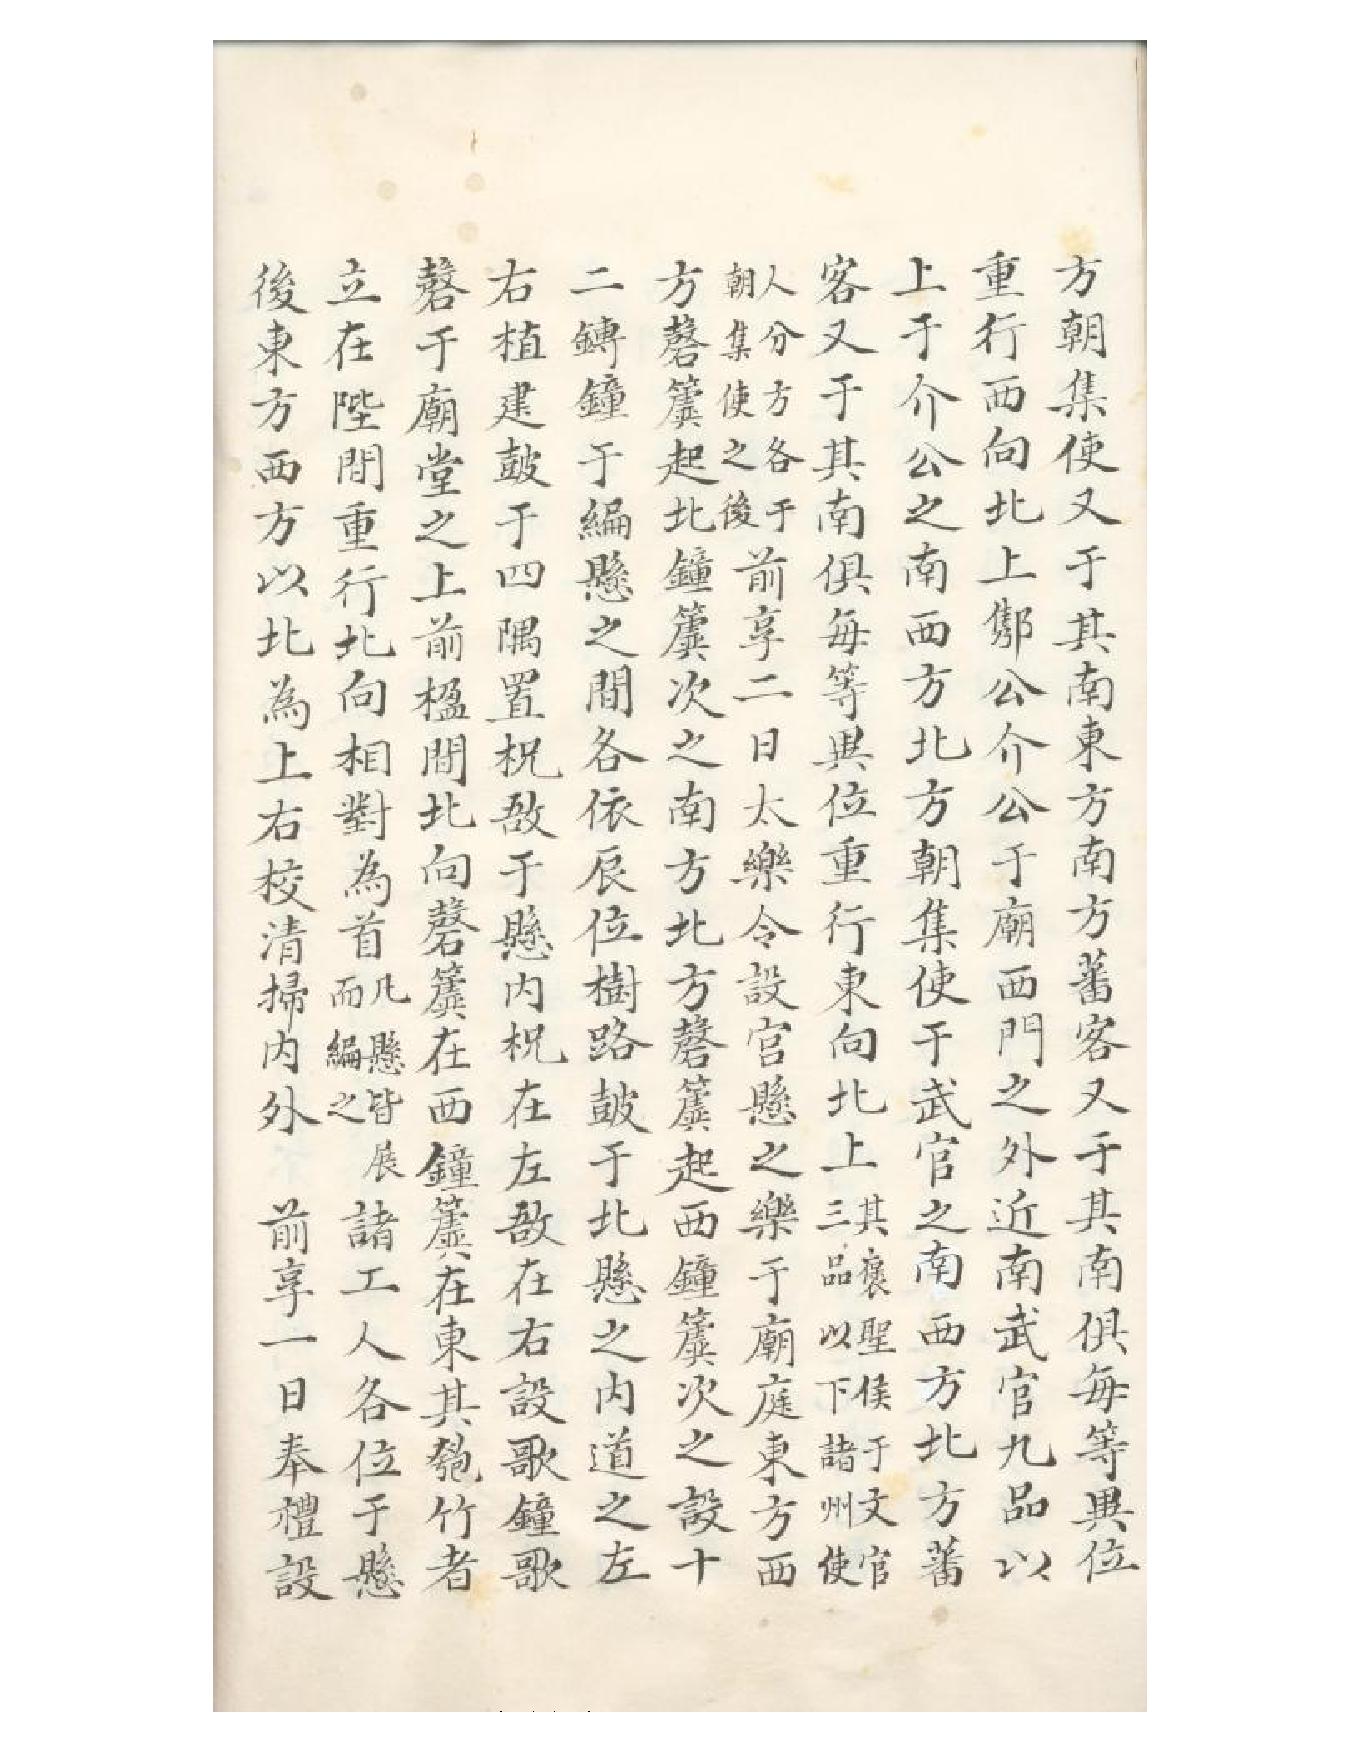 方朝集使又于其南東方南方蕃客又于其南俱每等異位
重行西向北上鄒公介公于廟西門之外近南武官九品以
上于介公之南西方北方朝集使于武官之南西方北方蕃
客又于其南俱每等異位重行東向北上其褒聖侯于文官三品以下諸州使
人分方各于朝集使之後前享二日太樂令設宫懸之樂于廟庭東方西
方磬簴起北鐘簴次之南方北方磬簴起西鐘簴次之設十
二鎛鐘于編懸之間各依辰位樹路鼓于北懸之内道之左
右植建鼓于四隅置柷敔于懸内柷在左敔在右設歌鐘歌
磬于廟堂之上前楹間北向磬簴在西鐘簴在東其匏竹者
立在陛間重行北向相對為首凡懸皆展而編之諸工人各位于懸
後東方西方以北為上右校清掃内外 前享一日奉禮設